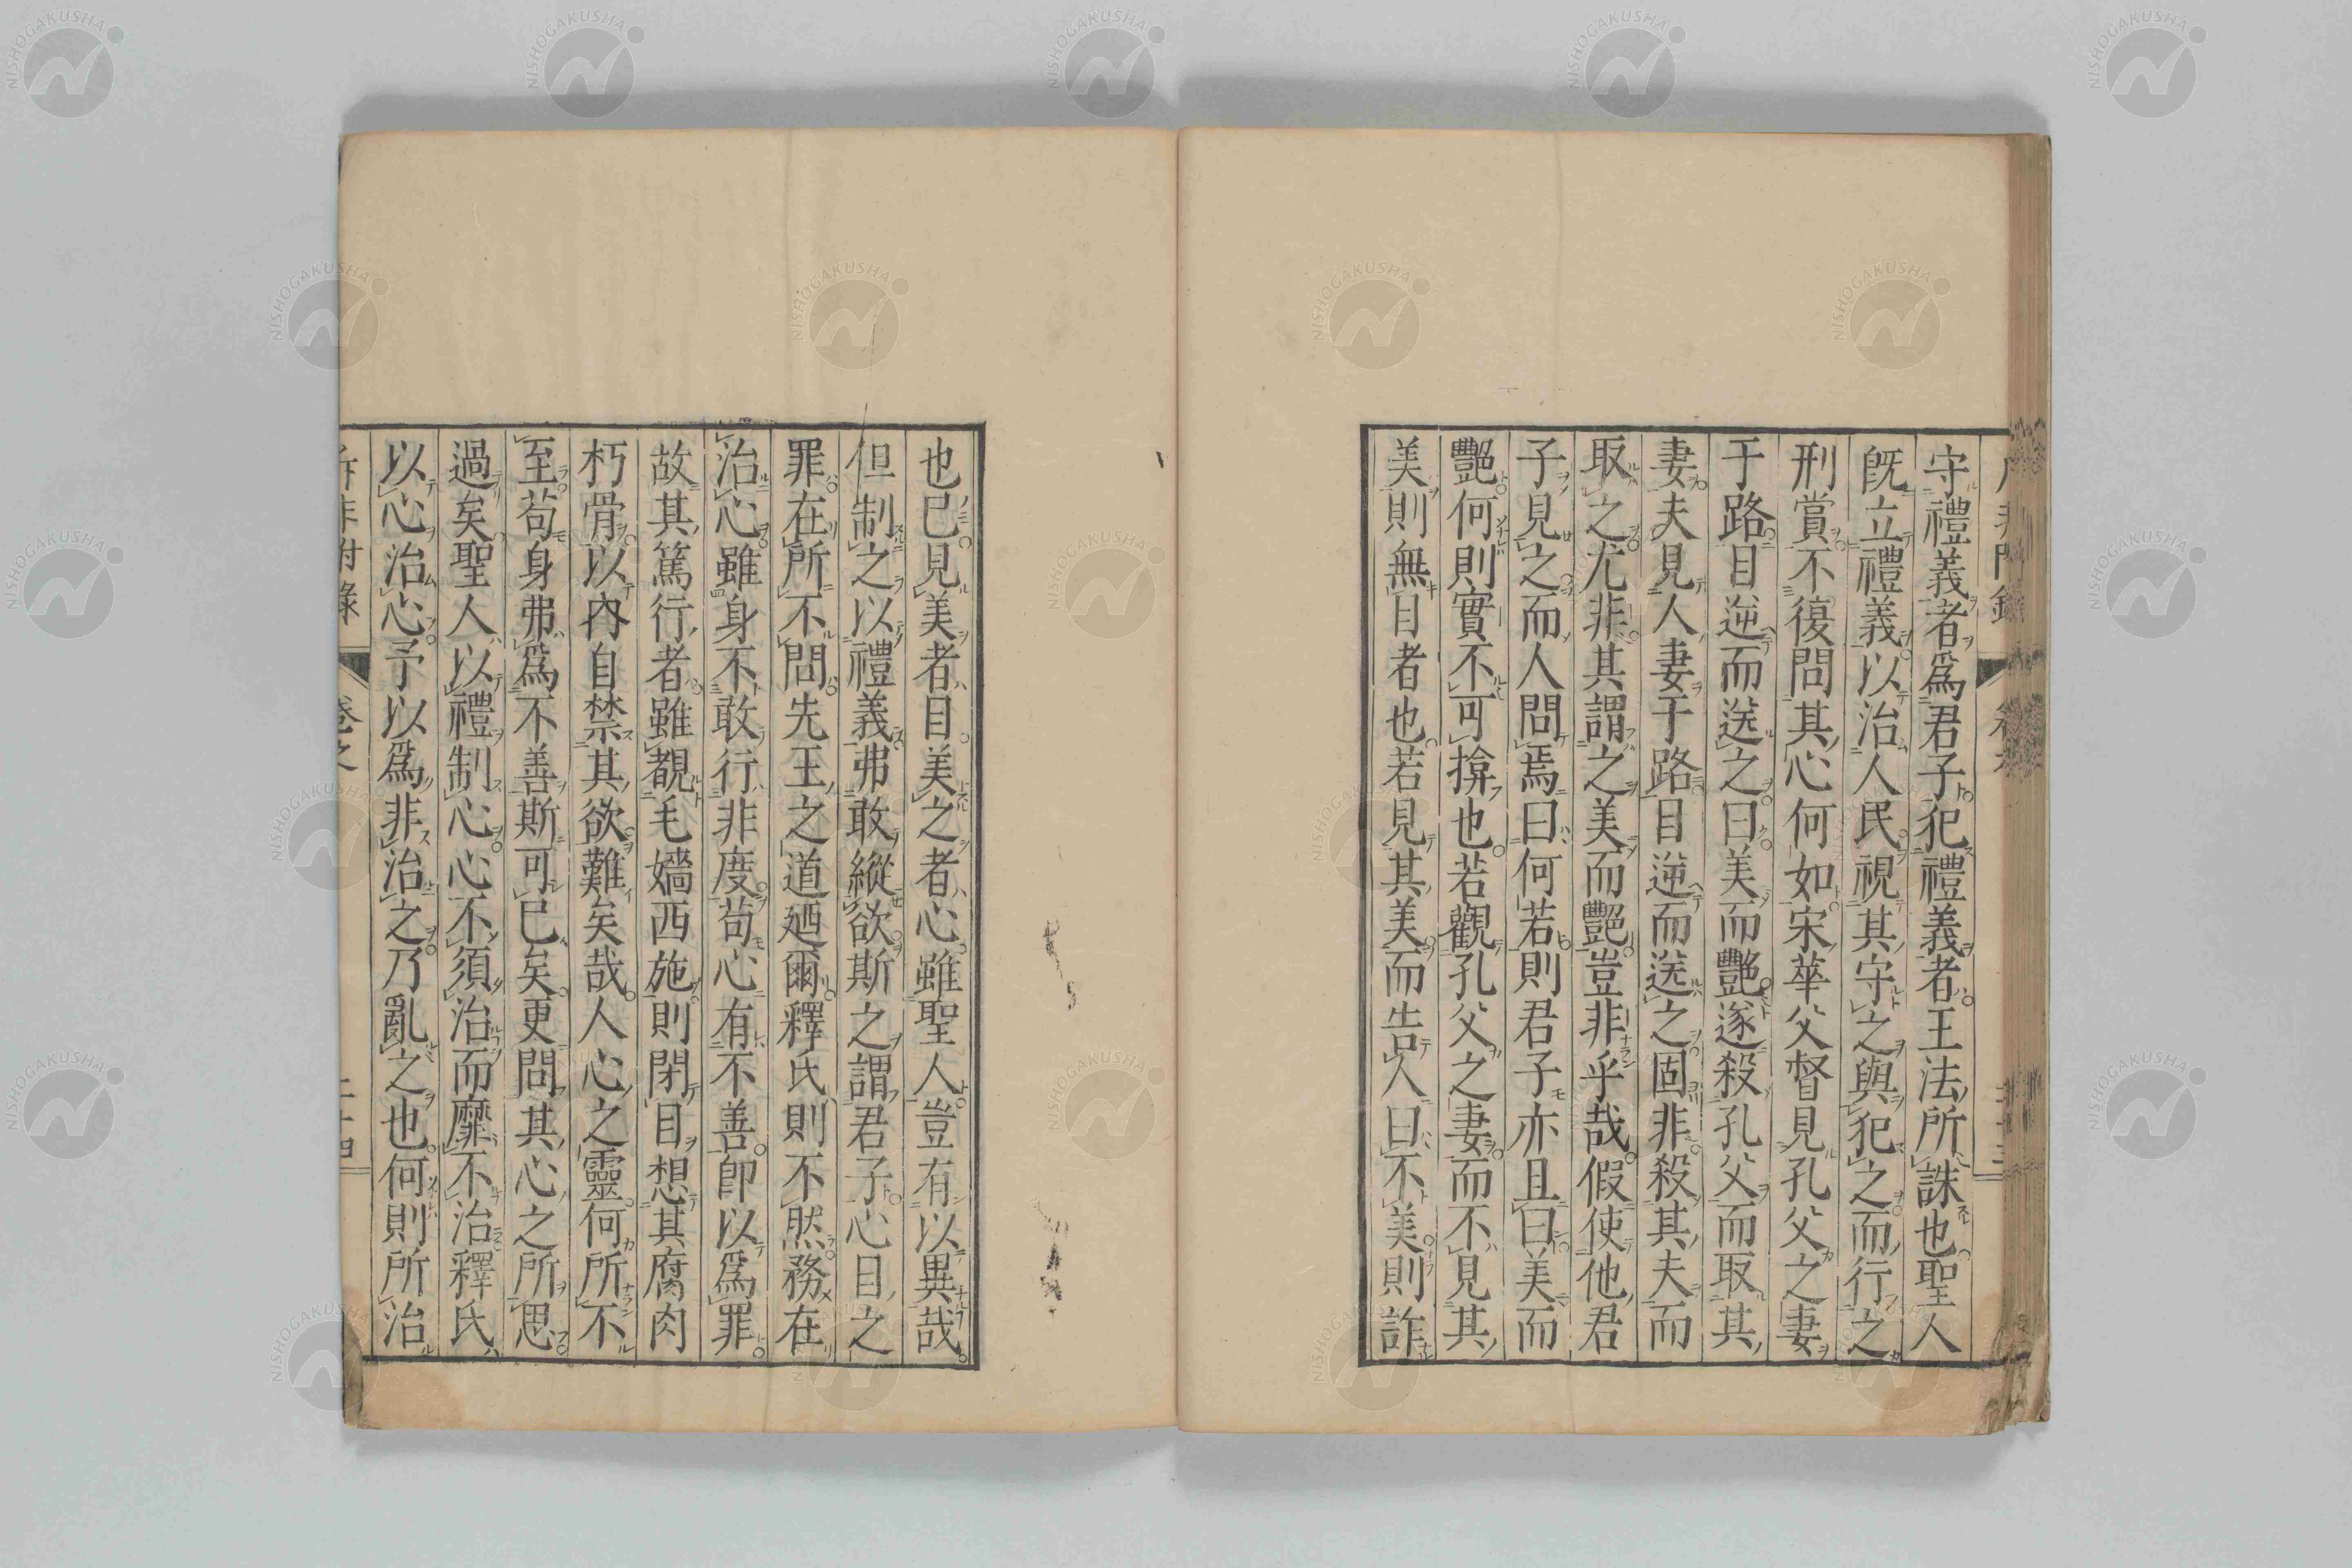 守禮義者爲君子犯禮義者王法所誅也聖人
既立禮義以治人民視其守之與犯之而行之
刑賞不復問其心何如宋華父督見孔父之妻
于路目逆而送之曰美而豔遂殺孔父而取其
妻夫見人妻于路目逆而送之固非殺其夫而
取之尤非其謂之美而豔豈非乎哉假使他君
子見之而人問焉曰何若則君子亦且曰美而
豔何則實不可揜也若觀孔父之妻而不見其
美則無目者也若見其美而告人曰不美則詐
也已見美者目美之者心雖聖人豈有以異哉
但制之以禮義弗敢縱欲斯之謂君子心目之
罪在所不問先王之道廼爾釋氏則不然務在
治心雖身不敢行非度苟心有不善即以爲罪
故其篤行者雖覩毛嬙西施則閉目想其腐肉
朽骨以內自禁其欲難矣哉人心之靈何所不
至苟身弗爲不善斯可已矣更問其心之所思
過矣聖人以禮制心心不須治而靡不治釋氏
以心治心予以爲非治之乃亂之也何則所治
非附錄
卷之
NISHOGAKUSHA